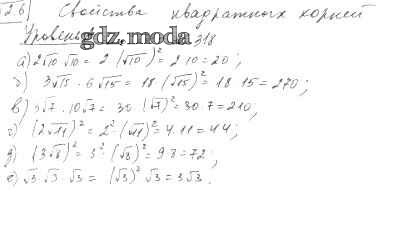 26 Свойства квадратных корней
Уровень gdz.moda 318
а) 2√10 · √10 = 2 · (√10)² = 2 · 10 = 20;
б) 3√15 · 6√15 = 18 (√15)² = 18 · 15 = 270;
в) 3√7 · 10√7 = 30 · (√7)² = 30 · 7 = 210;
г) (2√11)² = 2² · (√11)² = 4 · 11 = 44;
д) (3√8)² = 3² · (√8)² = 9 · 8 = 72;
е) √3 · √3 · √3 = (√3)² · √3 = 3√3.